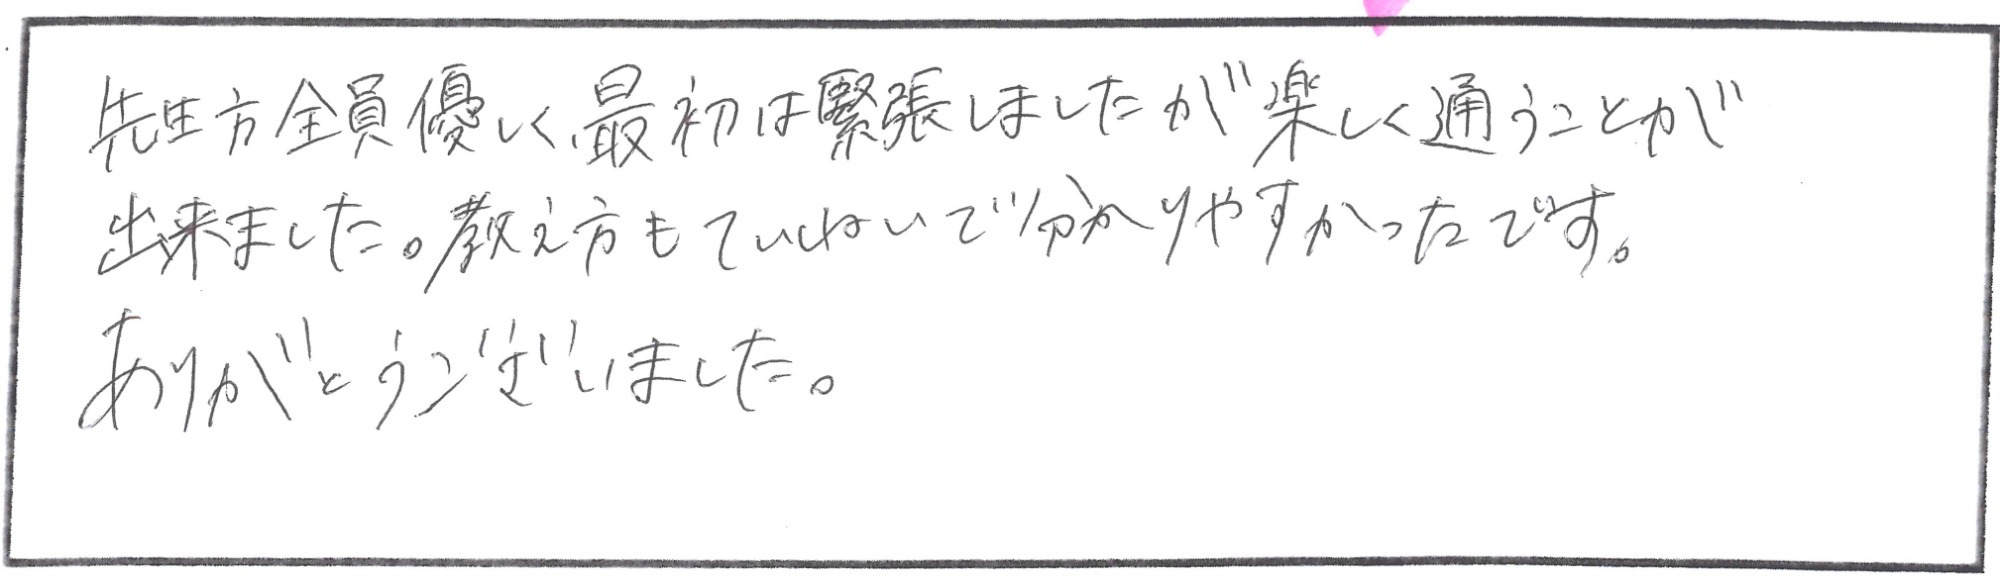 先生方全員優しく、最初は緊張しましたが楽しく通うことが
出来ました。教え方もていねいで分かりやすかったです。
ありがとうございました。